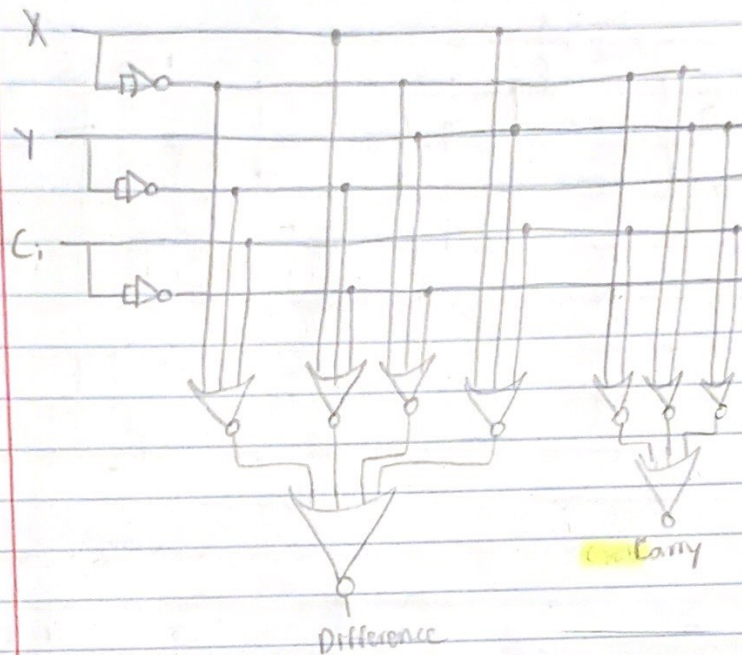 X
Y
Ci
Carry
Difference